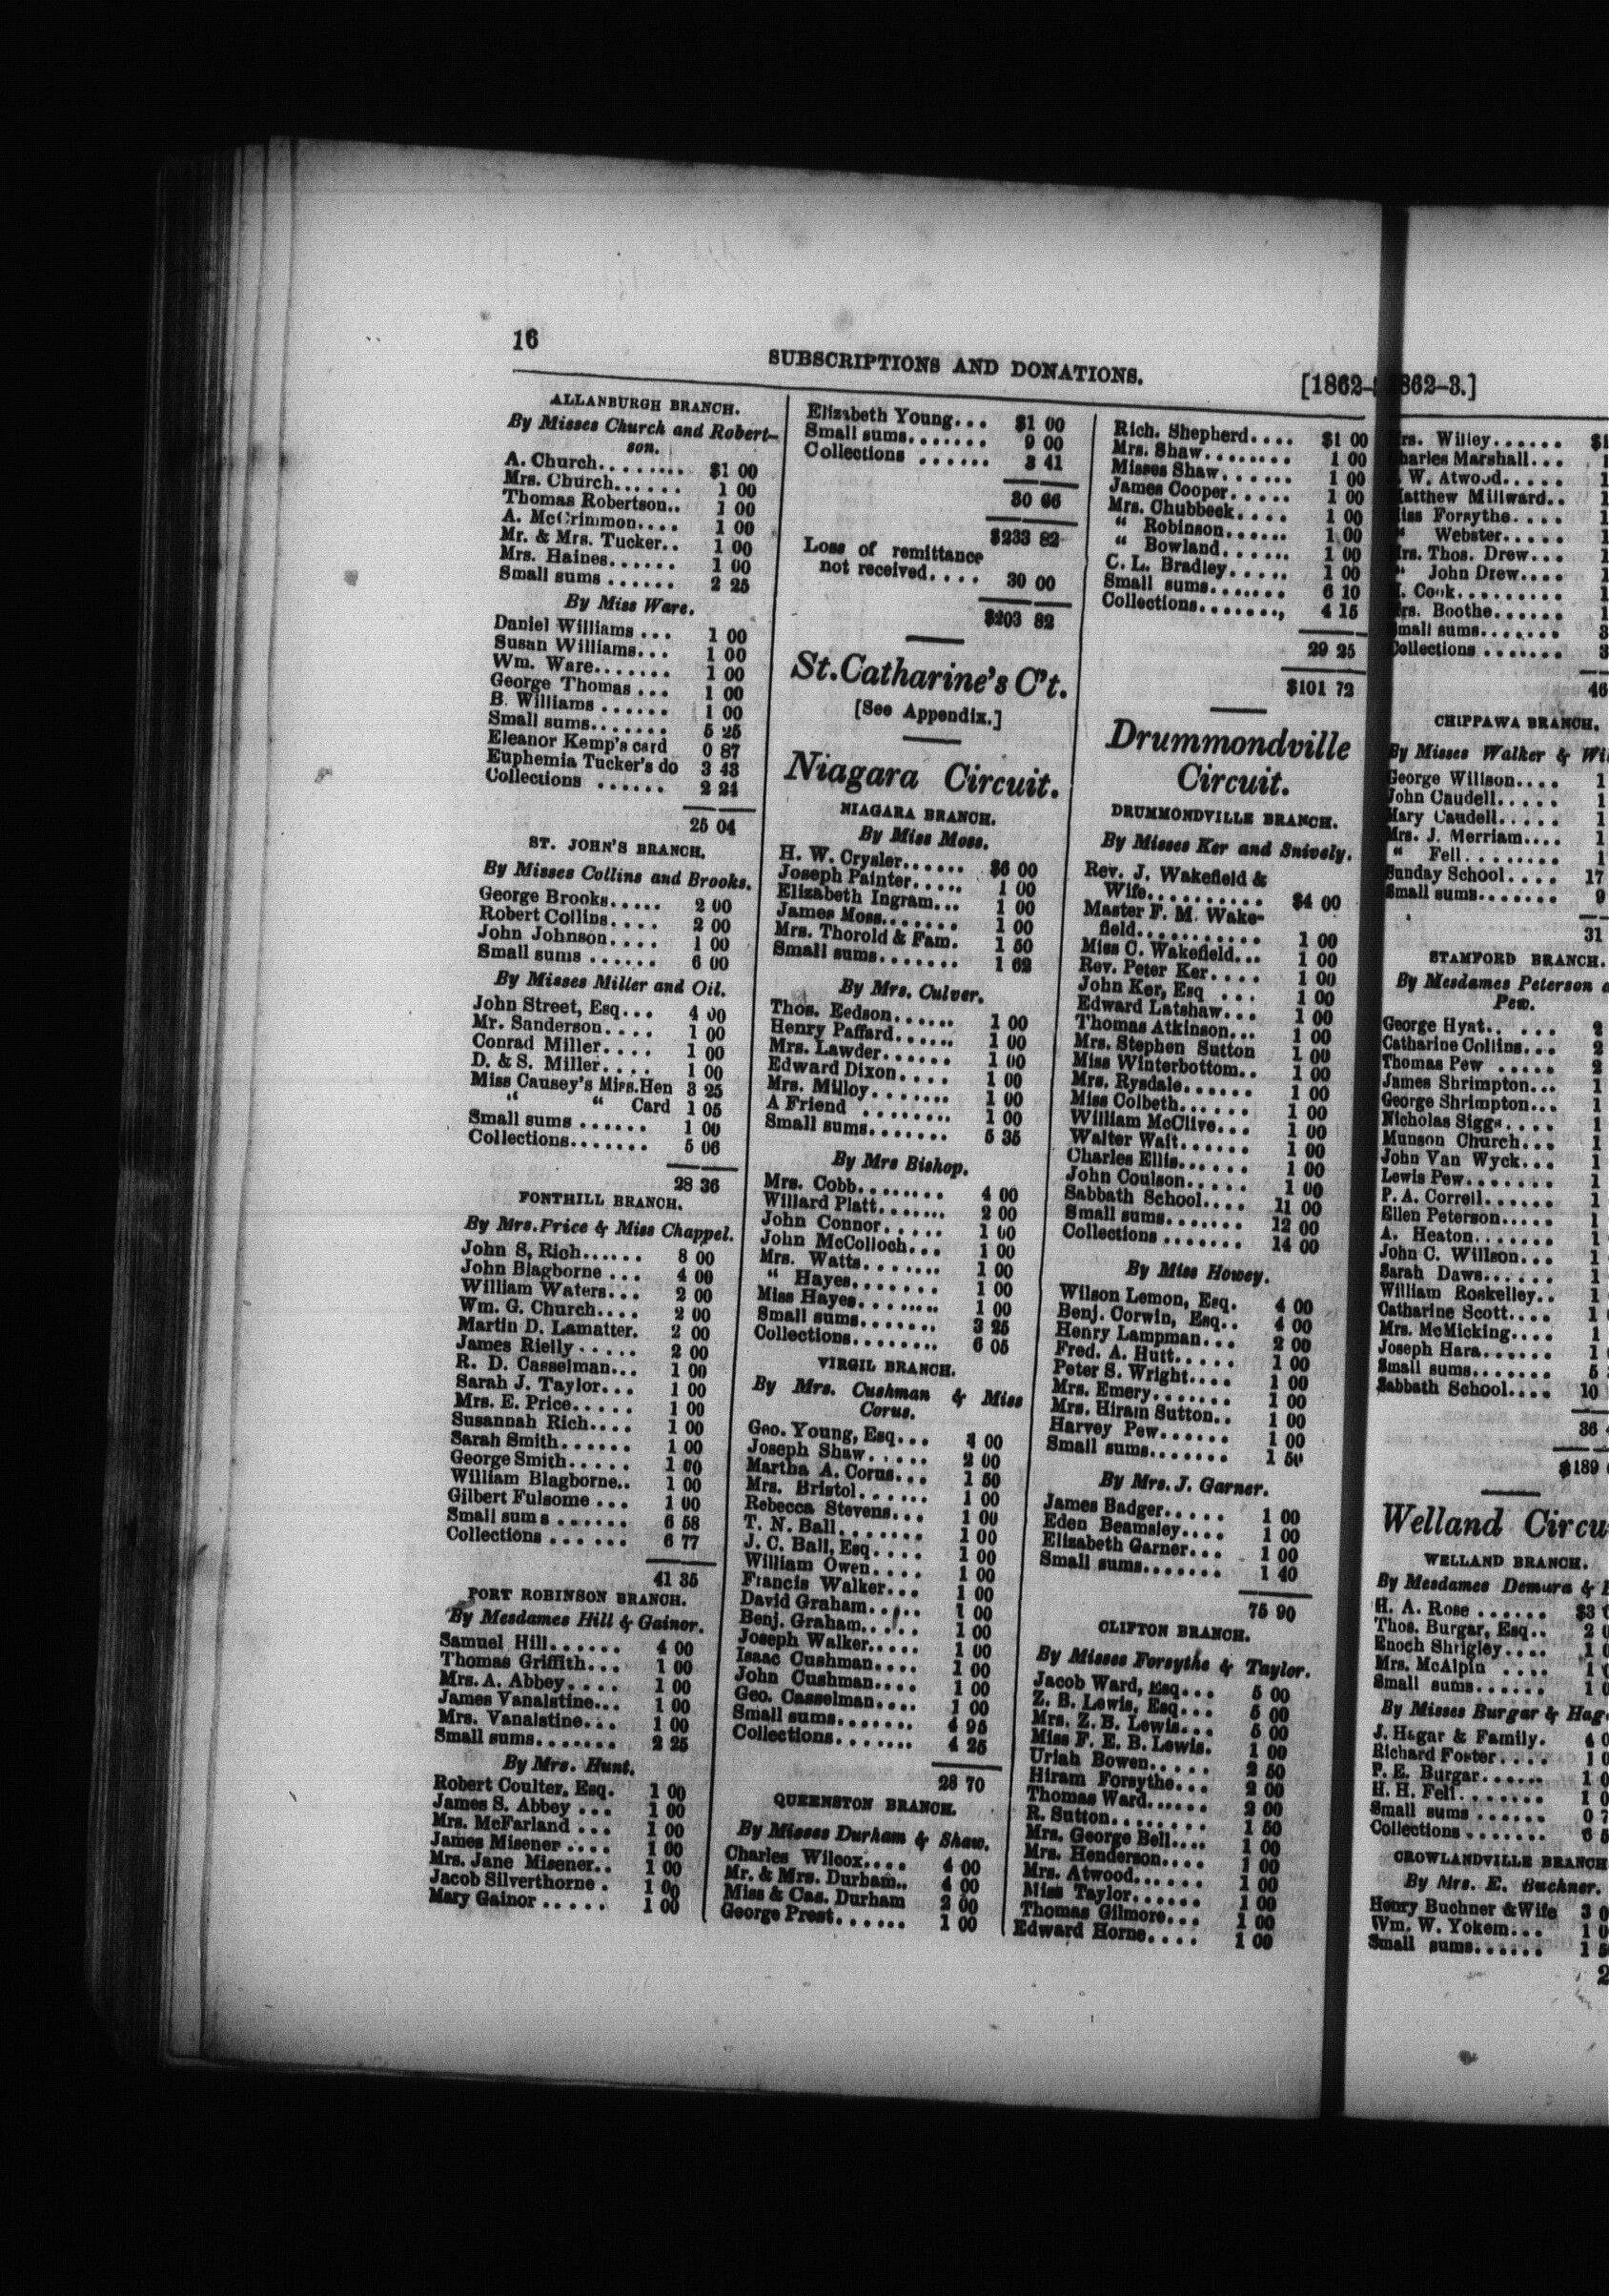 16
SUBSCRIPTIONS AND DONATIONS.
[1862-
ALLANBURGH BRANCH.
By Misses Church and Robert-
son.
A. Church........ $1 00
Mrs. Church...... 1 00
Thomas Robertson.. 1 00
A. McCrimmon.... 1 00
Mr. & Mrs. Tucker.. 1 00
Mrs. Haines...... 1 00
Small sums ...... 2 25
By Miss Ware.
Daniel Williams ... 1 00
Susan Williams... 1 00
Wm. Ware....... 1 00
George Thomas ... 1 00
B. Williams ...... 1 00
Small sums....... 5 25
Eleanor Kemp's card 0 87
Euphemia Tucker's do 3 43
Collections ...... 2 24
25 04
ST. JOHN'S BRANCH.
By Misses Collins and Brooks.
George Brooks..... 2 00
Robert Collins.... 2 00
John Johnson.... 1 00
Small sums ...... 6 00
By Misses Miller and Oil.
John Street, Esq... 4 00
Mr. Sanderson.... 1 00
Conrad Miller.... 1 00
D. & S. Miller.... 1 00
Miss Causey's Miss.Hen 3 25
“ “ Card 1 05
Small sums ...... 1 00
Collections....... 5 06
28 36
FONTHILL BRANCH.
By Mrs. Price & Miss Chappel.
John S, Rich...... 8 00
John Blagborne ... 4 00
William Waters... 2 00
Wm. G. Church.... 2 00
Martin D. Lamatter. 2 00
James Rielly...... 2 00
R. D. Casselman... 1 00
Sarah J. Taylor... 1 00
Mrs. E. Price..... 1 00
Susannah Rich.... 1 00
Sarah Smith...... 1 00
George Smith..... 1 00
William Blagborne.. 1 00
Gilbert Fulsome ... 1 00
Small sums ...... 6 58
Collections ...... 6 77
41 35
PORT ROBINSON BRANCH.
By Mesdames Hill & Gainor.
Samuel Hill...... 4 00
Thomas Griffith... 1 00
Mrs. A. Abbey.... 1 00
James Vanalstine... 1 00
Mrs. Vanalstine... 1 00
Small sums....... 2 25
By Mrs. Hunt.
Robert Coulter, Esq. 1 00
James S. Abbey ... 1 00
Mrs. McFarland ... 1 00
James Misener .... 1 00
Mrs. Jane Misener.. 1 00
Jacob Silverthorne . 1 00
Mary Gainor ..... 1 00
Elizabeth Young... $1 00
Small sums....... 9 00
Collections ...... 3 41
30 66
$233 82
Loss of remittance
not received.... 30 00
$203 82
St.Catharine's C't.
[See Appendix.]
Niagara Circuit.
NIAGARA BRANCH.
By Miss Moss.
H. W. Crysler...... $6 00
Joseph Painter..... 1 00
Elizabeth Ingram... 1 00
James Moss....... 1 00
Mrs. Thorold & Fam. 1 50
Small sums....... 1 62
By Mrs. Culver.
Thos. Eedson...... 1 00
Henry Paffard...... 1 00
Mrs. Lawder...... 1 00
Edward Dixon.... 1 00
Mrs. Milloy....... 1 00
A Friend ........ 1 00
Small sums....... 5 35
By Mrs Bishop.
Mrs. Cobb........ 4 00
Willard Platt....... 2 00
John Connor..... 1 00
John McColloch... 1 00
Mrs. Watts....... 1 00
“ Hayes....... 1 00
Miss Hayes........ 1 00
Small sums....... 3 25
Collections........ 6 05
VIRGIL BRANCH.
By Mrs. Cushman & Miss
Corus.
Geo. Young, Esq... 00
Joseph Shaw...... 2 00
Martha A. Corus... 1 50
Mrs. Bristol...... 1 00
Rebecca Stevens... 1 00
T. N. Ball....... 1 00
J. C. Ball, Esq.... 1 00
William Owen.... 1 00
Francis Walker... 1 00
David Graham..... 1 00
Benj. Graham..... 1 00
Joseph Walker..... 1 00
Isaac Cushman.... 1 00
John Cushman.... 1 00
Geo. Casselman.... 1 00
Small sums....... 4 95
Collections....... 4 25
28 70
QUEENSTON BRANCH.
By Misses Durham & Shaw.
Charles Wilcox.... 4 00
Mr. & Mrs. Durham.. 4 00
Miss & Cas. Durham 2 00
George Prest...... 1 00
Rich. Shepherd.... $1 00
Mrs. Shaw........ 1 00
Misses Shaw...... 1 00
James Cooper..... 1 00
Mrs. Chubbeck.... 1 00
“ Robinson...... 1 00
“ Bowland...... 1 00
C. L. Bradley..... 1 00
Small sums....... 6 10
Collections......., 4 15
29 25
$101 72
Drummondville
Circuit.
DRUMMONDVILLE BRANCH.
By Misses Ker and Snively.
Rev. J. Wakefield &
Wife.......... $4 00
Master F. M. Wake-
field........... 1 00
Miss C. Wakefield... 1 00
Rev. Peter Ker.... 1 00
John Ker, Esq ... 1 00
Edward Latshaw... 1 00
Thomas Atkinson... 1 00
Mrs. Stephen Sutton 1 00
Miss Winterbottom.. 1 00
Mrs. Rysdale...... 1 00
Miss Colbeth...... 1 00
William McClive... 1 00
Walter Wait...... 1 00
Charles Ellis...... 1 00
John Coulson..... 1 00
Sabbath School.... 11 00
Small sums....... 12 00
Collections ....... 14 00
By Miss Howey.
Wilson Lemon, Esq. 4 00
Benj. Corwin, Esq.. 4 00
Henry Lampman... 2 00
Fred. A. Hutt..... 1 00
Peter S. Wright.... 1 00
Mrs. Emery....... 1 00
Mrs. Hiram Sutton.. 1 00
Harvey Pew...... 1 00
Small sums....... 1 50
By Mrs. J. Garner.
James Badger..... 1 00
Eden Beamsley.... 1 00
Elizabeth Garner... 1 00
Small sums....... 1 40
75 90
CLIFTON BRANCH.
By Misses Forsythe & Taylor.
Jacob Ward, Esq... 5 00
Z. B. Lewis, Esq... 5 00
Mrs. Z. B. Lewis... 5 00
Miss F. E. B. Lewis. 1 00
Uriah Bowen..... 2 50
Hiram Forsythe... 2 00
Thomas Ward...... 2 00
R. Sutton......... 1 50
Mrs. George Bell.... 1 00
Mrs. Henderson.... 1 00
Mrs. Atwood...... 1 00
Miss Taylor...... 1 00
Thomas Gilmore... 1 00
Edward Horne.... 1 00
862-3.]
rs. Willey...... $1
harles Marshall... 1
W. Atwood..... 1
atthew Millward.. 1
iss Forsythe.... 1
“ Webster..... 1
rs. Thos. Drew... 1
“ John Drew.... 1
. Cook......... 1
rs. Boothe...... 1
mall sums....... 3
ollections ....... 3
46
CHIPPAWA BRANCH.
By Misses Walker & Wil
George Willson.... 1
John Caudell..... 1
Mary Caudell..... 1
Mrs. J. Merriam.... 1
“ Fell........ 1
Sunday School.... 17
Small sums....... 9
31
STAMFORD BRANCH.
By Mesdames Peterson a
Pew.
George Hyat.. ... 2
Catharine Collins... 2
Thomas Pew ..... 2
James Shrimpton... 1
George Shrimpton... 1
Nicholas Siggs.... 1
Munson Church... 1
John Van Wyck... 1
Lewis Pew....... 1
P. A. Correll...... 1
Ellen Peterson..... 1
A. Heaton....... 1
John C. Willson... 1
Sarah Daws...... 1
William Roskelley.. 1
Catharine Scott.... 1
Mrs. McMicking.... 1
Joseph Hara...... 1
Small sums....... 5
Sabbath School.... 10
36
$189
Welland Circu
WELLAND BRANCH.
By Mesdames Demura &
H. A. Rose ...... $3
Thos. Burgar, Esq.. 2 0
Enoch Shrigley.... 1 0
Mrs. McAlpin .... 1
Small sums...... 1 0
By Misses Burgar & Hag
J. Hagar & Family. 4 0
Richard Foster.... 1 0
P. E. Burgar...... 1 0
H. H. Fell....... 1 0
Small sums ...... 0 7
Collections ....... 6 5
CROWLANDVILLE BRANCH
By Mrs. E. Buchner.
Henry Buchner & Wife 3 0
Wm. W. Yokem... 1 0
Small sums...... 1 5
2